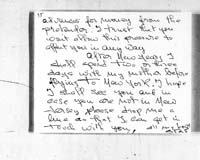 advances for money from the
pretender. I trust that you
wont allow this promise to
affect you in any way
After New Years I
shall spend two or three
days with my mother before
flying to New York. I hope
I shall see you and in
case you are not in New
Jersey please drop me a
line so that I can get in
touch with you,